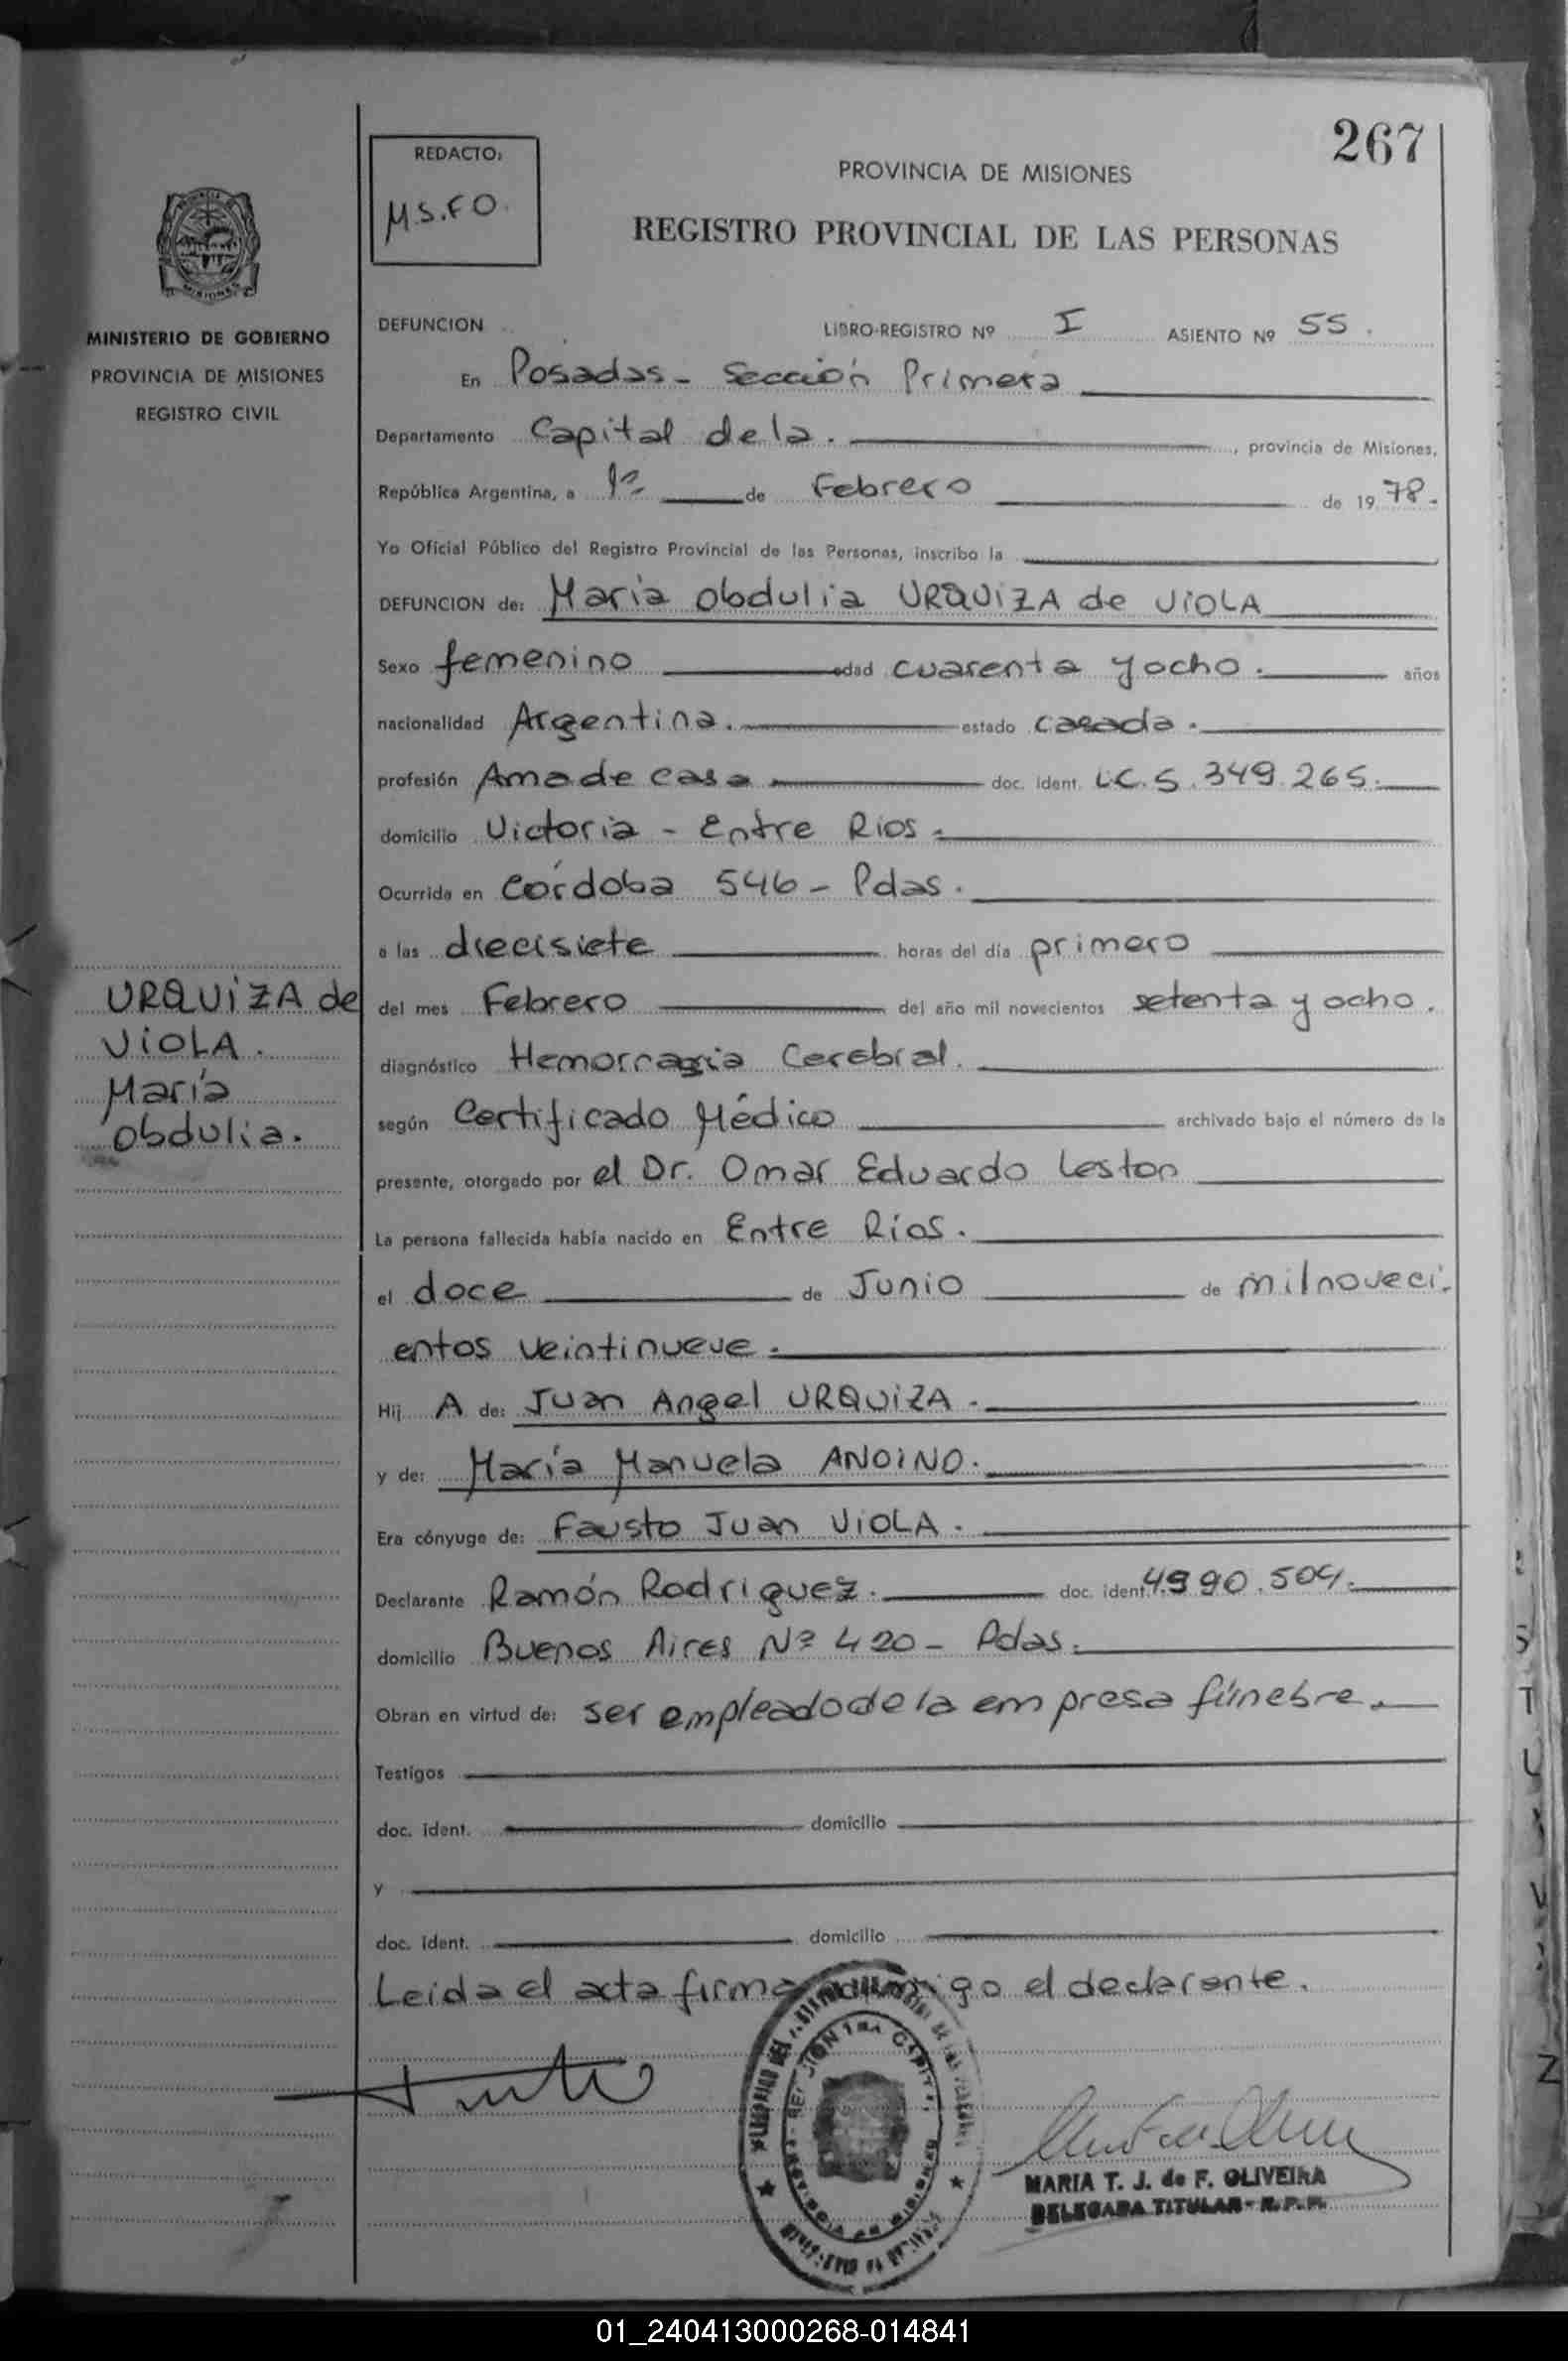 267
REDACTO:
M.S.F O.
PROVINCIA DE MISIONES
REGISTRO PROVINCIAL DE LAS PERSONAS
MISIONES
MINISTERIO DE GOBIERNO
PROVINCIA DE MISIONES
REGISTRO CIVIL
DEFUNCION LIBRO-REGISTRO Nº I ASIENTO Nº 55.
En Posadas - Sección Primera
Departamento Capital de la. , provincia de Misiones,
República Argentina, a 1º de Febrero de 1978.
Yo Oficial Público del Registro Provincial de las Personas, inscribo la
DEFUNCION de: María Obdulia URQUIZA de VIOLA
Sexo femenino edad cuarenta y ocho. años
nacionalidad Argentina. estado casada.
profesión Ama de casa doc. ident. L.C. 5.349.265.
domicilio Victoria - Entre Rios.
Ocurrida en Córdoba 546 - Pdas.
a las diecisiete horas del día primero
URQUIZA de
VIOLA.
María
Obdulia.
del mes Febrero del año mil novecientos setenta y ocho.
diagnóstico Hemorragia Cerebral.
según Certificado Médico archivado bajo el número de la
presente, otorgado por el Dr. Omar Eduardo Leston
La persona fallecida había nacido en Entre Ríos.
el doce de Junio de mil noveci-
entos veintinueve.
Hij A de: Juan Angel URQUIZA.
y de: María Manuela ANOINO.
Era cónyuge de: Fausto Juan VIOLA.
Declarante Ramón Rodriguez. doc. ident. 4.990.504.
domicilio Buenos Aires Nº 420 - Pdas.
Obran en virtud de: ser empleado de la empresa fúnebre.
Testigos
doc. ident. domicilio
y
doc. ident. domicilio
Leida el acta firma conmigo el declarante.
MARIA T. J. de F. OLIVEIRA
DELEGADA TITULAR - R.P.P.
01_240413000268-014841